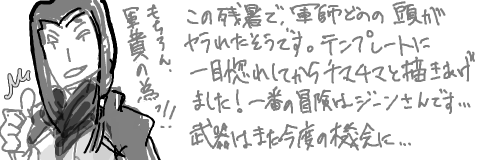 もちろん、
軍費の為っ!!
この残暑で、軍師どのの頭が
ヤラれたそうです。テンプレートに
一目惚れしてからチマチマと描きあげ
ました!一番の冒険はジーンさんです…
武器はまた今度の機会に…